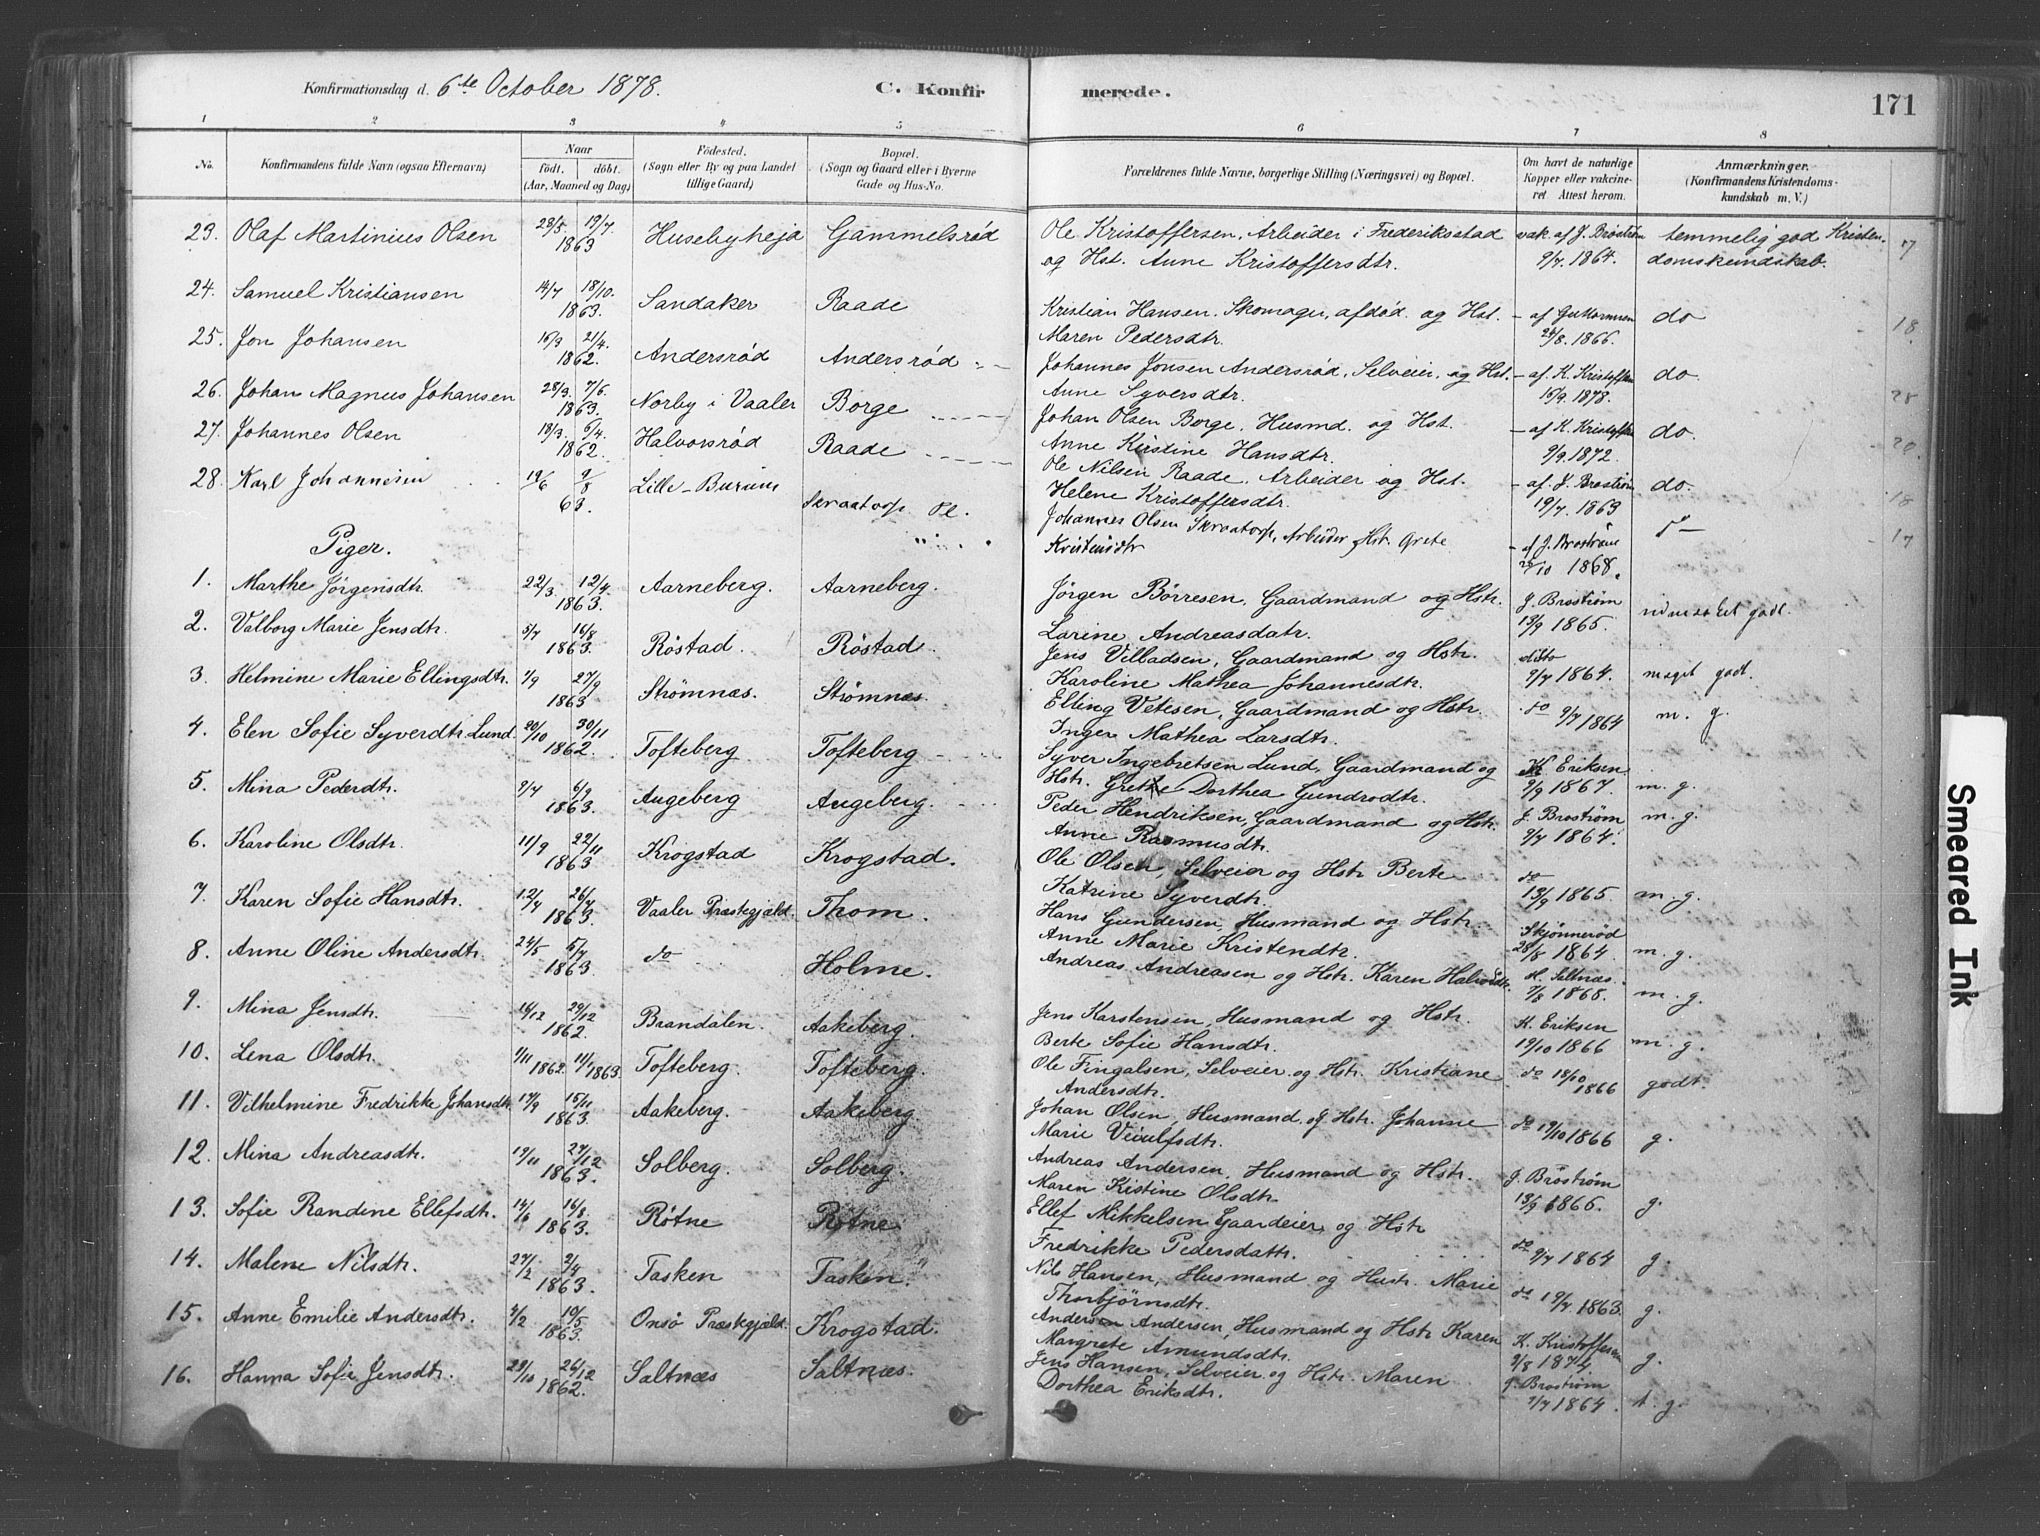 Konfirmationsdag d. 6te October 1878. C. Konfirmerede. 171
1 2 3 4 5 6 7 8
No. Konfirmandens fulde Navn (ogsaa Efternavn) Naar födt. döbt. (Aar, Maaned og Dag) Födested. (Sogn eller By og paa Landet tillige Gaard) Bopæl. (Sogn og Gaard eller i Byerne Gade og Hus-No. Forældrenes fulde Navne, borgerlige Stilling (Næringsvei) og Bopæl. Om havt de naturlige Kopper eller vakcineret Attest herom. Anmærkninger. (Konfirmandens Kristendomskundskab m. V.)
23. Olaf Martinius Olsen 28/5 19/7 1863 Husebyheja Gammelsrød Ole Kristoffersen, Arbeider i Frederiksstad og Hst. Anne Kristoffersdtr. vak. af J. Broström 9/7. 1864. temmelig god Kristendomskundskab. 17
24. Samuel Kristiansen 14/7 18/10. 1863. Sandaker Raade Kristian Hansen, Skomager, afdød og Hst. Maren Pedersdtr. - af Guttormsen 24/8. 1866. do 18.
25. Jon Johansen 16/3 21/4. 1862. Andersrød Andersrød Johannes Jonsen Andersrød, Selveier, og Hst. Anne Syversdtr. - af K. Kristoffersen 16/9. 1878. do.
26. Johan Magnus Johansen 28/3. 7/6. 1863. Norby i Vaaler Borge Johan Olsen Borge, Husmd. og Hst. Anne Kristine Hansdtr. - af K. Kristoffersen 9/9. 1872. do.
27. Johannes Olsen 18/3 6/4. 1862. Halvorsrød Raade Ole Nilsen Raade, Arbeider og Hst. Helene Kristoffersdtr. - af J. Broström 19/7. 1863 do. 18
28. Karl Johannesen 19/6 9/8 63. Lille-Burum Skraatorp Pl. Johannes Olsen Skraatorp, Arbeider, Hst. Grete Kristensdtr - af J. Broström 26/10 1868. 17
Piger.
1. Marthe Jørgensdtr. 22/3. 12/4. 1863. Aarneberg. Aarneberg. Jörgen Börresen, Gaardmand og Hstr. Larine Andreasdatr. J. Broström 13/9 1865. udmærket godt.
2. Valborg Marie Jensdtr. 5/7 16/8 1863. Röstad. Röstad. Jens Vilbadsen, Gaardmand og Hstr. Karoline Mathea Johannesdtr. ditto 9/7 1864. meget godt.
3. Helmine Marie Ellingsdtr. 7/9 27/9 1863 Strømnæs. Strømnæs. Elling Vetesen, Gaardmand og Hstr. Inger Mathea Larsdtr. do 9/7 1864 m. g.
4. Elen Sofie Syverdtr. Lund 20/10 30/11 1862. Tofteberg Tofteberg Syver Ingebretsen Lund, Gaardmand og Hstr. Grethe Dorthea Gundrodtr. K Eriksen 9/9 1867. m. g.
5. Mina Pederdtr. 9/7 6/9 1863. Augeberg Augeberg. Peder Hendriksen, Gaardmand og Hstr. Anne Rasmusdtr. J. Broström 9/7 1864. m. g.
6. Karoline Olsdtr. 11/9 22/11 1863 Krogstad Krogstad. Ole Olsen, Selveier og Hstr Berte Katrine Syverdtr. do 13/9 1865. m. g.
7. Karen Sofie Hansdtr. 12/4 26/7 1863. Vaaler Præstegjæld. Thom. Hans Gundersen, Husmand og Hstr. Anne Marie Kristendtr. Skjönneröd 28/8 1864. m. g.
8. Anne Oline Andersdtr. 24/5 5/7 1863. do Holme. Andreas Andreasen og Hstr. Karen Halvordtr. H. Saltnæs. 7/8 1868. m. g.
9. Mina Jensdtr. 14/12 29/12 1862. Brandalen. Aakeberg. Jens Karstensen, Husmand og Hstr. Berte Sofie Hansdtr. K. Eriksen 19/10 1866 m. g.
10. Lena Olsdtr. 9/11 1862. 11/1 1863. Tofteberg. Tofteberg. Ole Fingalsen, Selveier og Hstr. Kristiane Andersdtr. do 18/10 1866 godt.
11. Vilhelmine Fredrikke Johansdtr. 17/9 15/11 1863. Aakeberg. Aakeberg. Johan Olsen, Husmand og Hstr. Johanne Marie Veiulfsdtr. do 19/10 1866 g.
12. Mina Andreasdtr. 19/11 27/12 1863. Solberg. Solberg. Andreas Andersen, Husmand og Hstr. Maren Kistine Olsdtr. J. Broström 13/9 1865. g.
13. Sofie Randine Ellefsdtr. 14/6 16/8. 1863. Rötne Rötne Ellef Mikkelsen Gaardeier, og Hstr Fredrikke Pedersdattr. do 9/7 1864 g.
14. Malene Nilsdtr. 27/2 2/4 1863. Tasken Tasken. Nils Hansen, Husmand og Hustr. Marie Thorbjörnsdtr. do 19/7. 1863. g.
15. Anne Emilie Andersdtr. 4/2 10/5 1863. Onsö Præstegjæld. Krogstad. Andersen Andersen, Husmand og Hstr Karen Margrete Amundsdtr. K. Kristoffersen 9/8 1874 g.
16. Hanna Sofie Jensdtr. 29/10 26/12 1862. Saltnæs Saltnæs. Jens Hansen, Selveier og Hstr. Maren Dorthea Eriksdtr. J. Broström 9/7 1864. t. g.
Smeared Ink